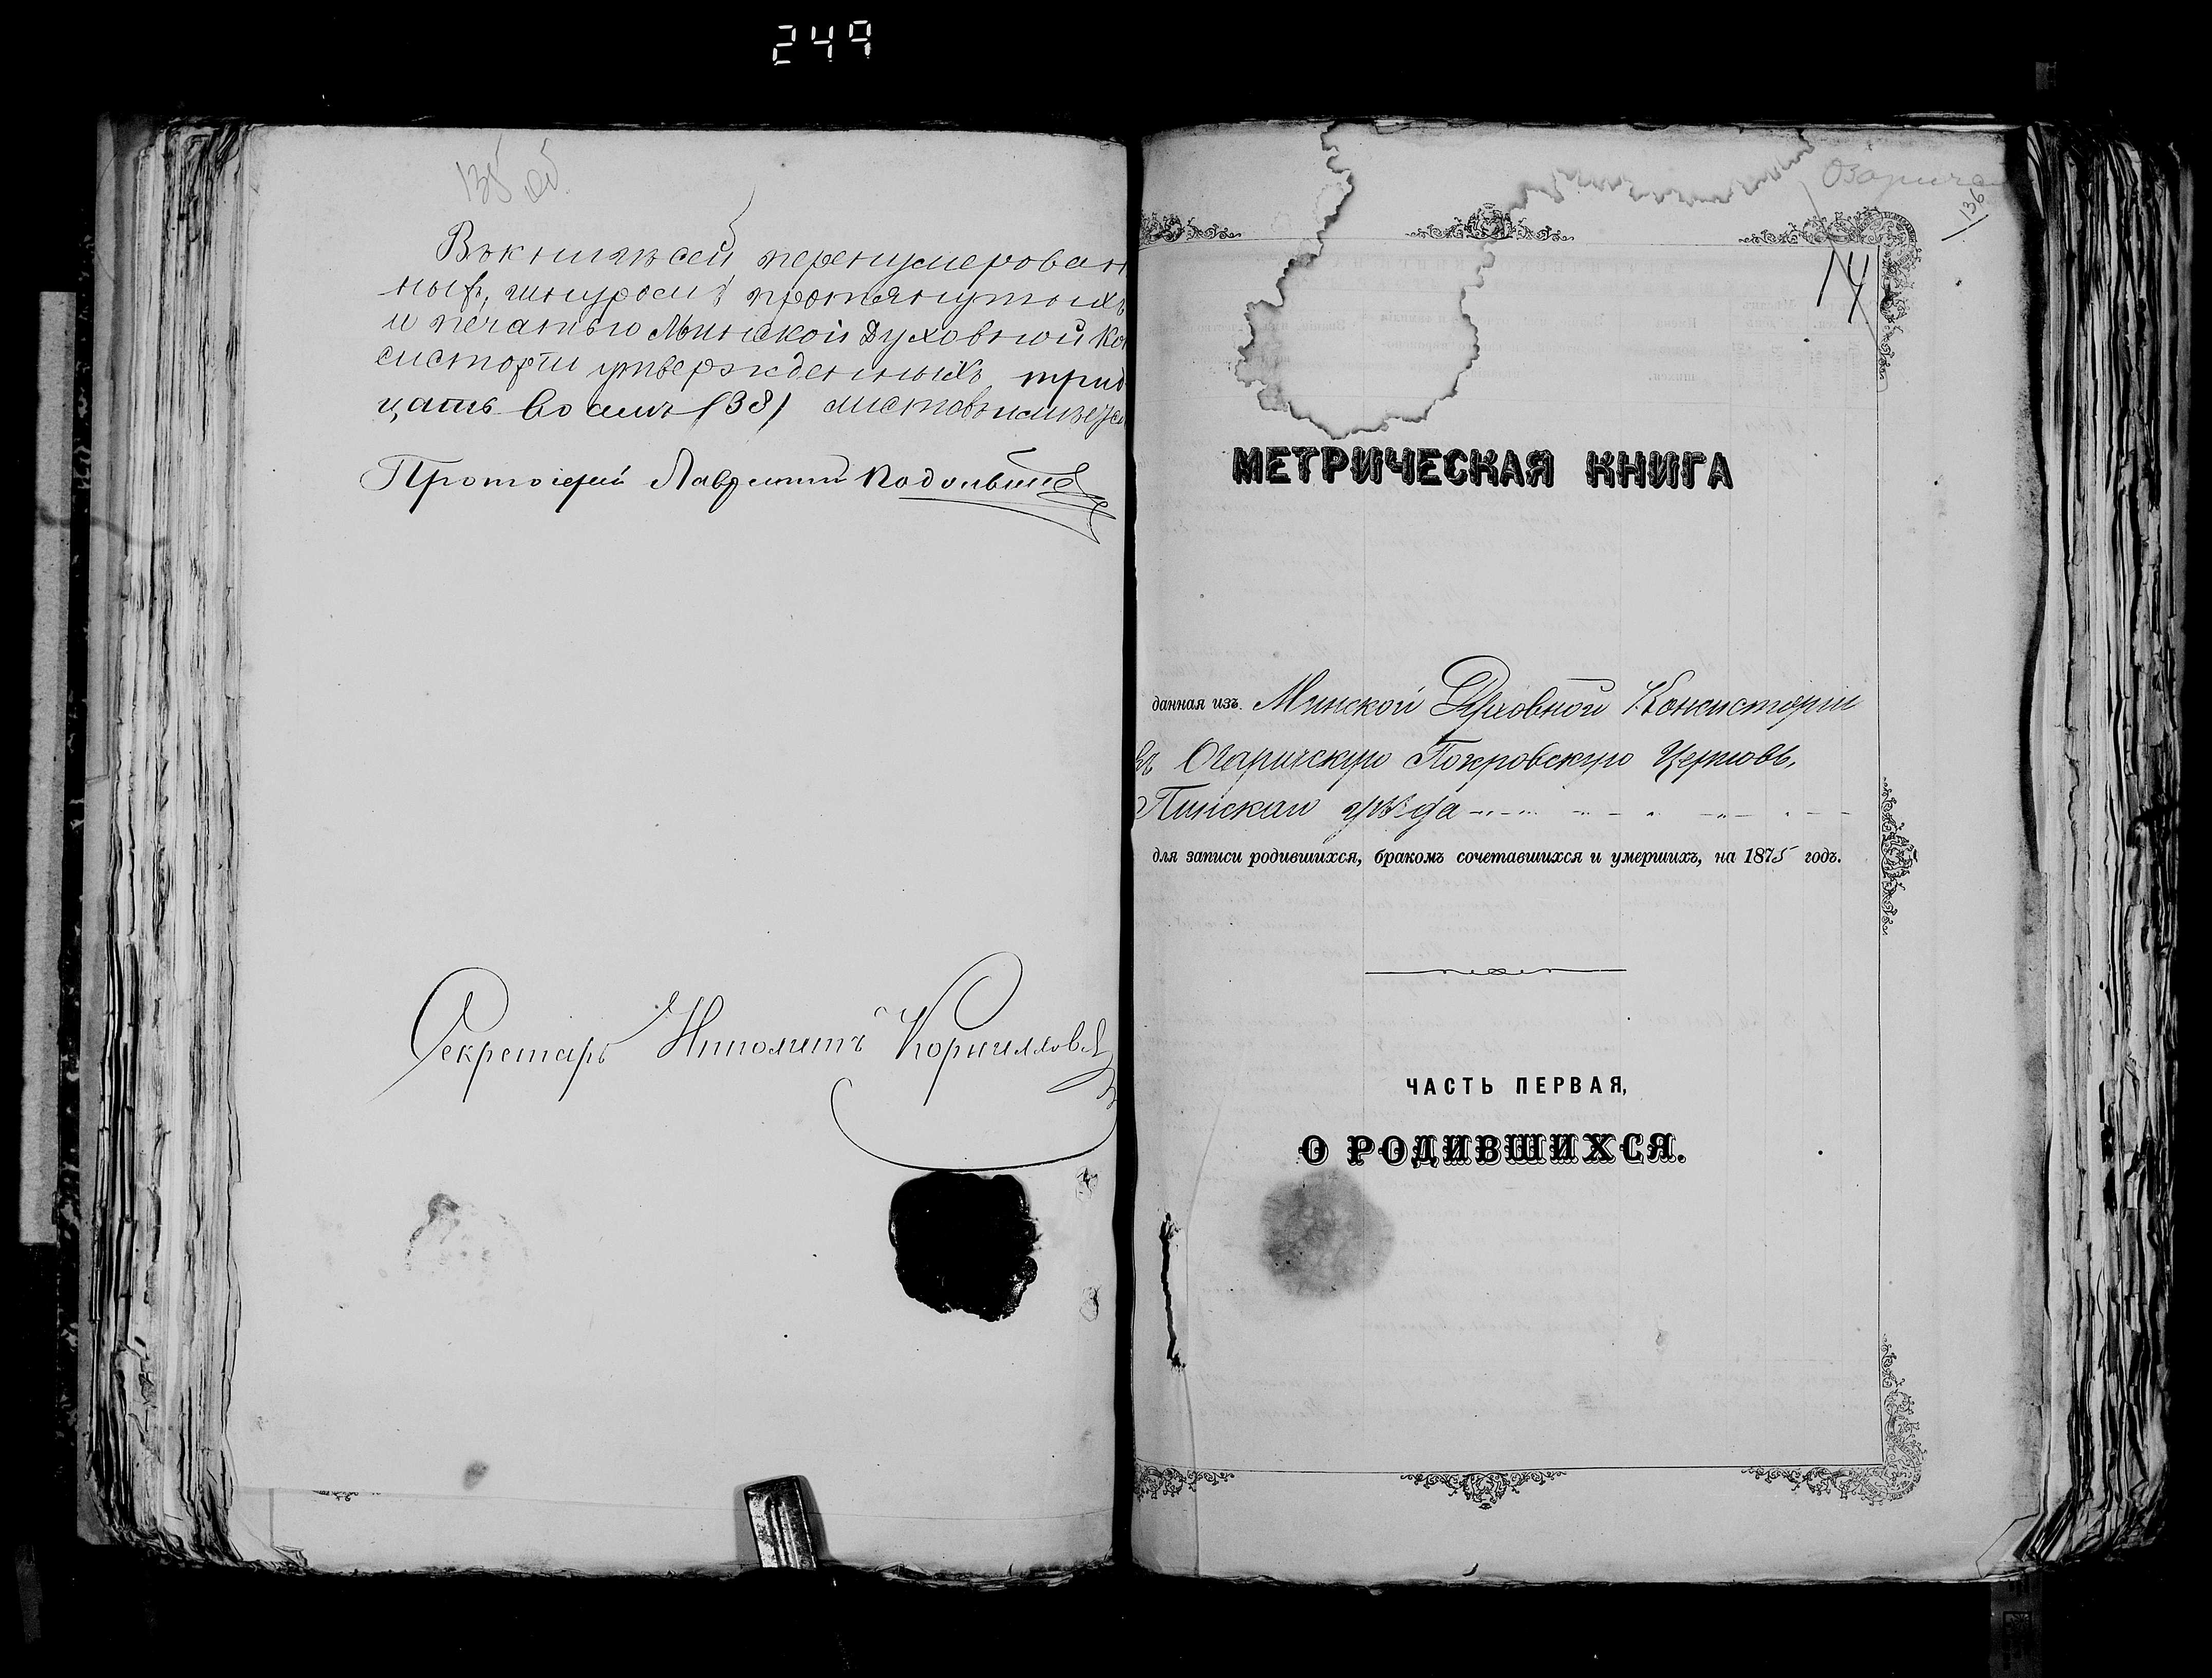 249
135 об.
Въ книгѣ сей перенумерован
ныхъ, шнуромъ протянутыхъ
и печатью Минской Духовной Ко
систоріи утвержденныхъ трид
цать восемь (38) листовъ
Протоіерей Лаврентій
Секретарь Иполитъ Корниловъ
Озаричск
136
14
МЕТРИЧЕСКАЯ КНИГА
данная изъ Минской Духовной Консисторіи
въ Огаричскую Покровскую Церковь,
Пинскаго уѣзда
для записи родившихся, бракомъ сочетавшихся и умершихъ, на 1875 годъ.
ЧАСТЬ ПЕРВАЯ,
О РОДИВШИХСЯ.